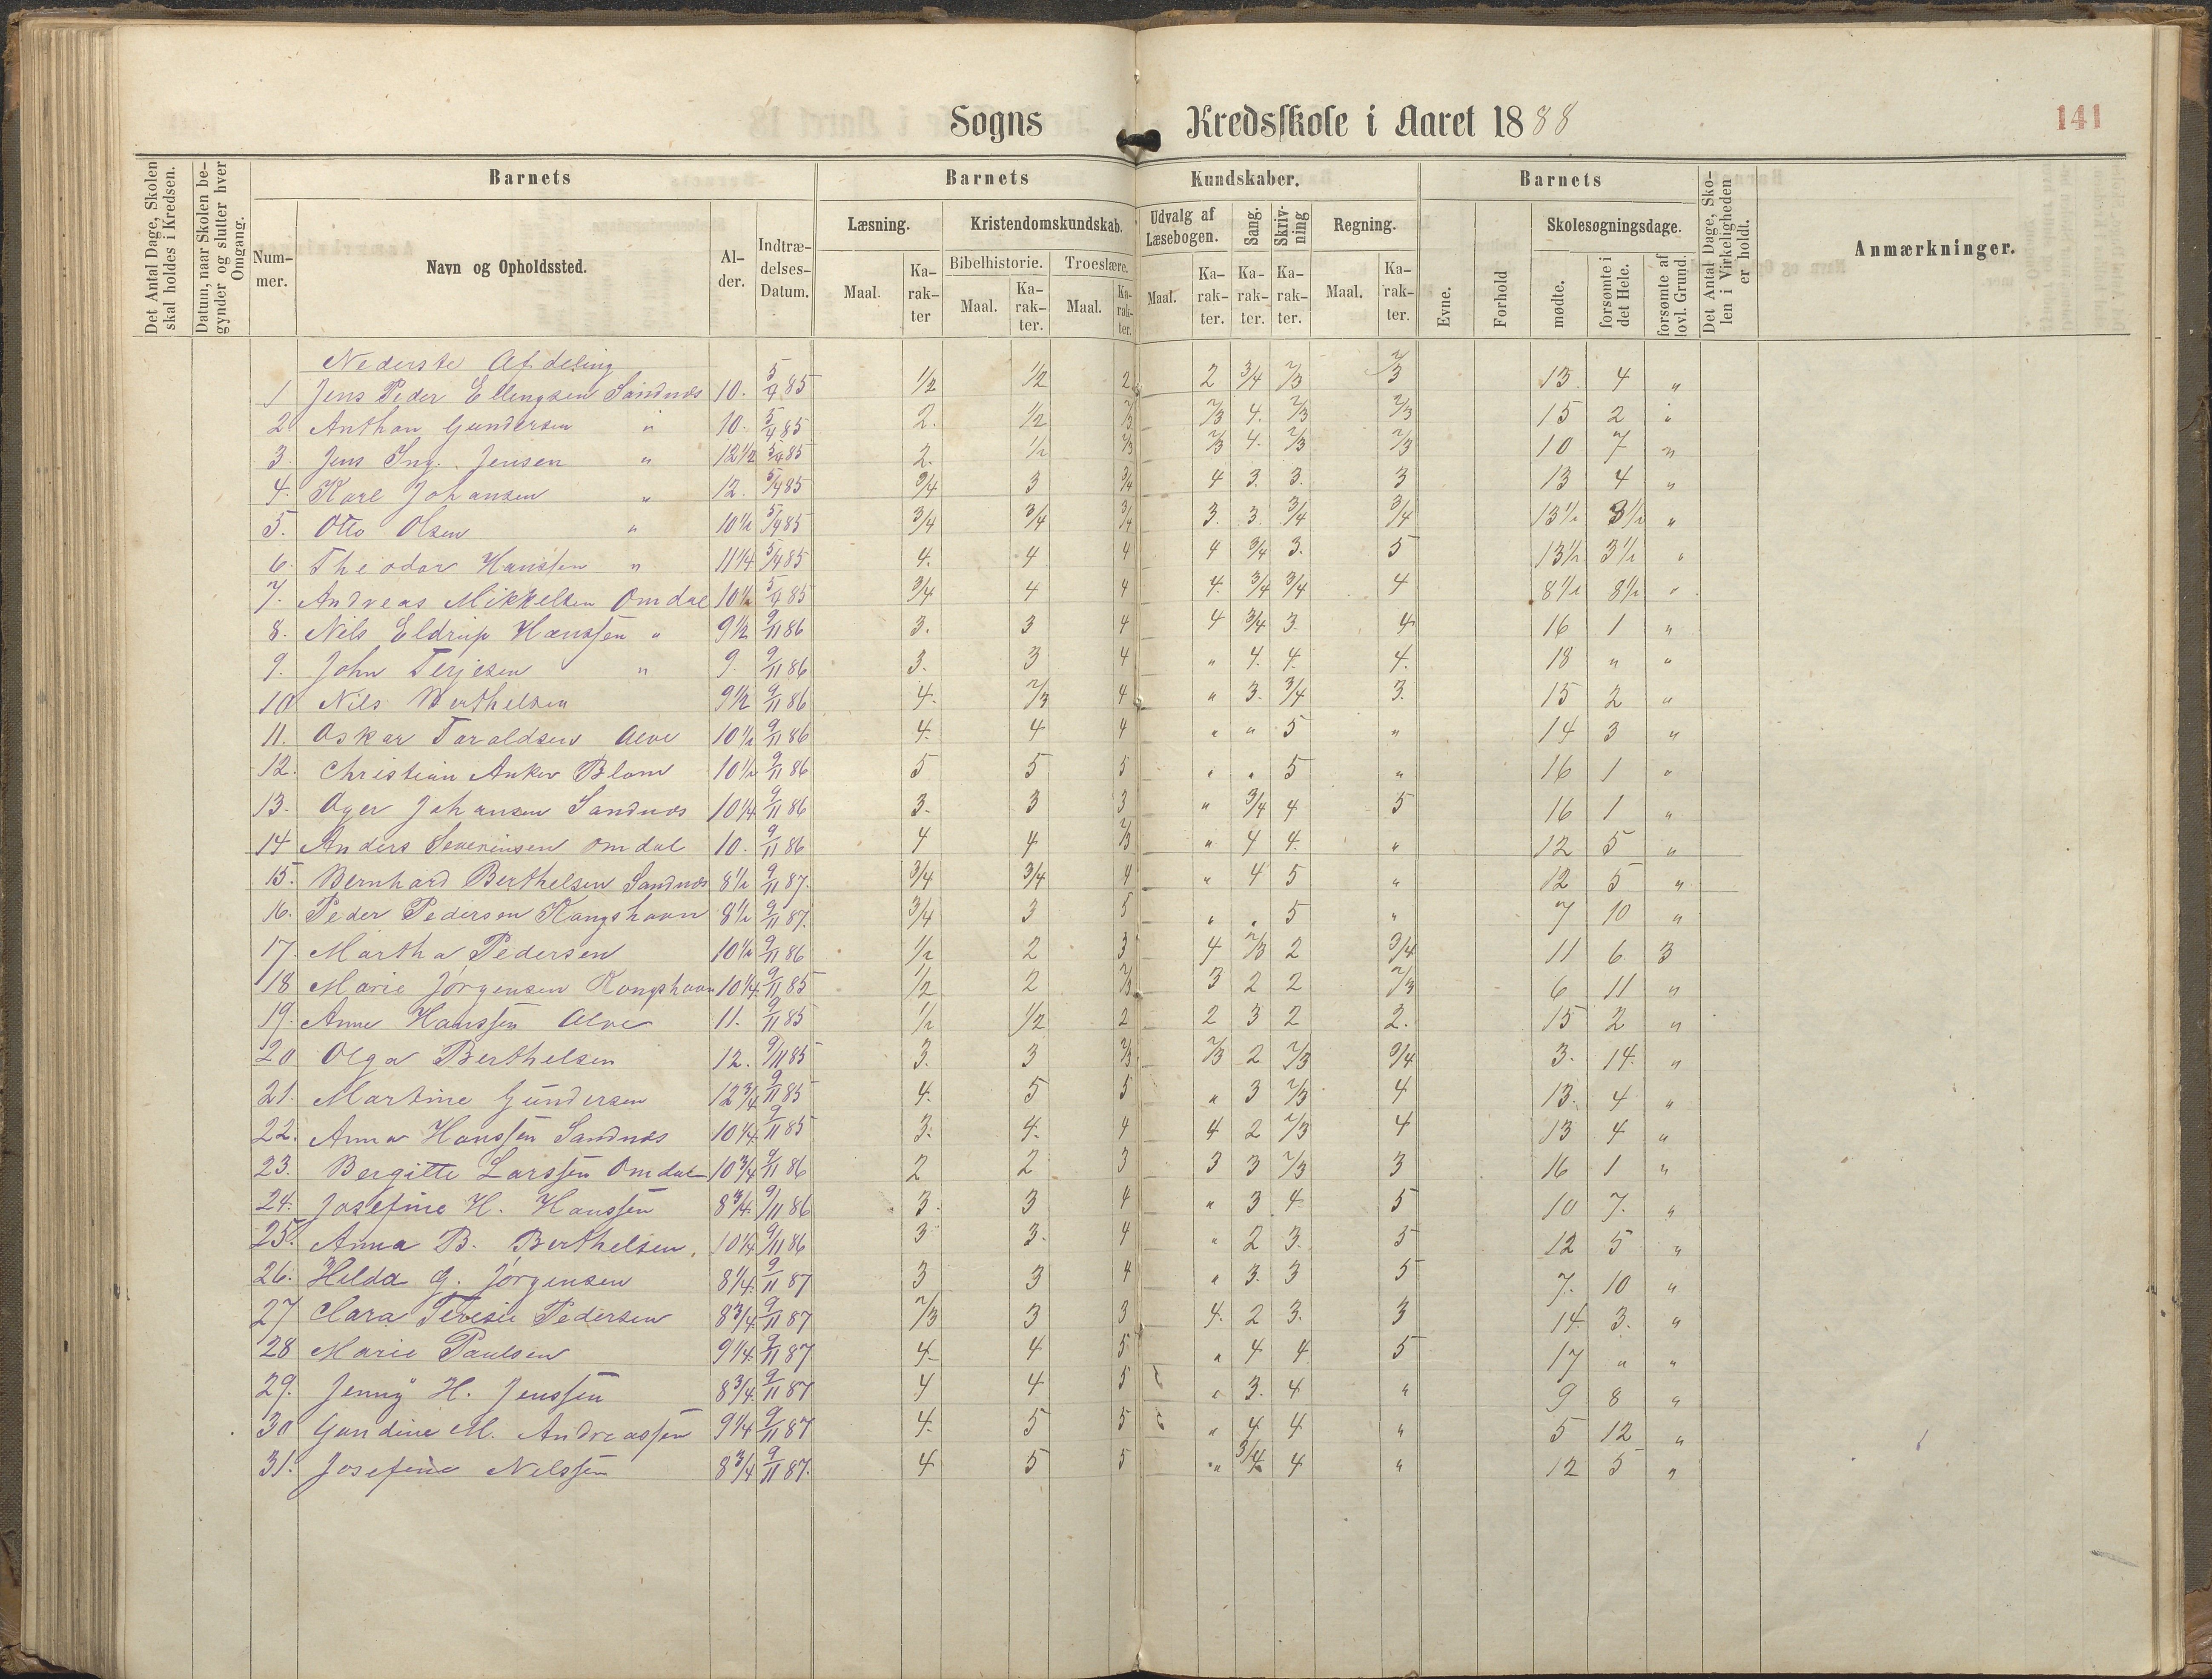 Sogns Kredsskole i Aaret 1888 141
Det Antal Dage, Skolen skal holdes i Kredsen.
Datum, naar Skolen begynder og slutter hver Omgang.
Barnets Barnets Kundskaber. Barnets
Det Antal Dage, Skolen i Virkeligheden er holdt.
Anmærkninger.
Nummer. Navn og Opholdssted. Alder. Indtrædelses-Datum.
Læsning. Kristendomskundskab. Udvalg af Læsebogen. Sang. Skrivning Regning. Evne. Forhold Skolesøgningsdage.
Bibelhistorie. Troeslære.
Maal. Karakter Maal. Karakter. Maal. Karakter. Maal. Karakter. Karakter. Karakter. Maal. Karakter. mødte. forsømte i det Hele. forsømte af lovl. Grund.
Nederste Afdeling
1 Jens Peder Ellengsen Sandnæs 10. 5/4 85 1/2 1/2 2 2 3/4 2/3 2/3 13. 4 "
2 Anthon Gundersen " 10. 5/4 85 2. 1/2 2/3 2/3 4. 2/3 2/3 15 2 "
3. Jens Ing. Jensen " 12 1/2 5/4 85 2. 1/2 2/3 2/3 4. 2/3 2/3 10 7 "
4. Karl Johansen " 12. 5/4 85 3/4 3 3/4 4 3. 3. 3 13 4 "
5. Otto Olsen " 10 1/2 5/4 85 3/4 3/4 3/4 3. 3. 3/4 3/4 13 1/2 3 1/2 "
6. Theodor Hanssen " 11 1/4 5/4 85 4. 4 4 4 3/4 3. 5 13 1/2 3 1/2 "
7. Andreas Mikkelsen Omdal 10 1/2 5/4 85 3/4 4 4 4. 3/4 3/4 4 8 1/2 8 1/2 "
8. Nils Eldrup Hanssen " 9 1/2 9/11 86 3. 3 4 4 3/4 3 4 16 1 "
9. John Terjesen " 9. 9/11 86 3. 3 4 " 4. 4. 4. 18 " "
10 Nils Berthelsen 9 1/2 9/11 86 4. 2/3 4 " 3. 3/4 3. 15 2 "
11. Oskar Taraldsen Alve 10 1/2 9/11 86 4. 4 4 " " 5 " 14 3 "
12. Christian Anker Blom 10 1/2 9/11 86 5 5 5 " " 5 " 16 1 "
13. Ager Johansen Sandnæs 10 1/4 9/11 86 3. 3 3 " 3/4 4 5 16 1 "
14 Anders Severinsen Omdal 10. 9/11 86 4 4 2/3 " 4 4. " 12 5 "
15. Bernhard Berthelsen Sandnæs 8 1/2 9/11 87. 3/4 3/4 4 " 4 5 " 12 5 "
16. Peder Pedersen Kongshavn 8 1/2 9/11 87. 3/4 3 5 " " 5 " 7 10 "
17. Martha Pedersen 10 1/2 9/11 86 1/2 2 3 4 2/3 2 3/4 11 6 3
18 Marie Jørgensen Kongshavn 10 1/4 9/11 85 1/2 2 2/3 3 2 2 2/3 6 11 "
19. Anne Hanssen Alve 11. 9/11 85 1/2 1/2 2 2 3 2 2. 15 2 "
20 Olga Berthelsen 12. 9/11 85 3. 3 2/3 2/3 2 2/3 3/4 3. 14. "
21. Martine Gundersen 12 3/4 9/11 85 4. 5 5 " 3 2/3 4 13. 4 "
22. Anna Hanssen Sandnæs 10 1/4 9/11 85 3. 4. 4 4 2 2/3 4 13 4 "
23. Bergitte Larssen Omdal 10 3/4 9/11 86 2 2 3 3 3 2/3 3 16 1 "
24. Josefine H. Hanssen 8 3/4 9/11 86 3. 3 4 " 3 4. 5 10 7. "
25. Anna B. Berthelsen. 10 1/4 9/11 86 3 3. 4 " 2 3. 5 12 5 "
26. Hilda G. Jørgensen 8 1/4 9/11 87 3 3 4 " 3. 3 5 7. 10 "
27 Clara Teresie Pedersen 8 3/4 9/11 87 2/3 3 3 4. 2 3. 3 14. 3. "
28 Marie Paulsen 9 1/4 9/11 87 4 4 5 " 4 4 5 17 " "
29. Jenny H. Jenssen 8 3/4 9/11 87 4 4 5 " 3. 4 " 9 8 "
30 Gundine M. Andreassen 9 1/4 9/11 87 4. 5 5 " 4 4 " 5 12 "
31. Josefine Nelssen 8 3/4 9/11 87. 4 5 5 " 3/4 4 " 12 5 "